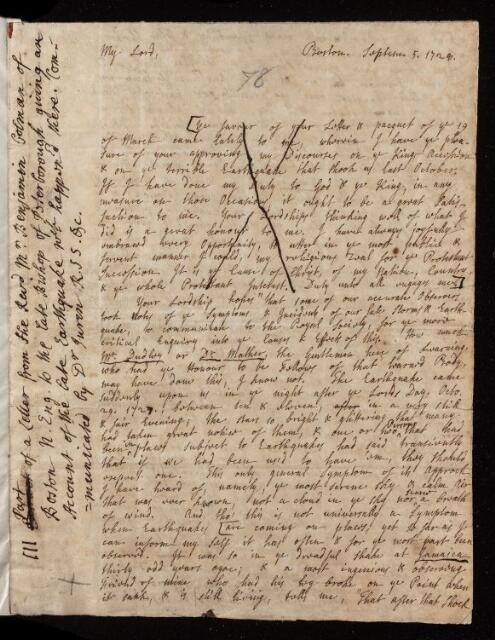 Part of a Letter from the Revd Mr Benjamin Colman of
Boston N Eng. to the late Bishop of Peterborough giving an
Account of the late Earthquake wch happen'd there. Com-
=municated by Dr Jurin R.S.S. &c.
My Lord,
Boston. Septem 5. 1729.
78
[Ye favour of your Letter & pacquet of ye 19
of March came lately to me, wherein I have ye plea-
sure of your approving my Discourses on ye Kings Accession
& on ye terrible Earthquake that shook us last October.
If I have done my Duty to God & ye King, in any
measure on those Occasions, it ought to be a great Satis-
faction to me. Your Lordships thinking well of what I
did is a great honour to me. I have always joyfully
embraced every Opportunity, to utter in ye most publick &
fervent manner I could, my religious Zeal for ye Protestant
Succession. It is ye Cause of Christ, of my Nation, Country,
& ye whole Protestant Interest. Duty unto all engages me.]
Your Lordship hopes that some of our accurate Observers
took Notes of ye Symptoms & Incidents of our late Storms & Earth-
quake, to communicate to the Royal Society, for ye more
critical Enquiry into ye Causes & Effects of this. How most
Mr. Dudley or Dr. Mather, the Gentlemen here of Learning,
who had ye Honour to be Fellows of that learned Body
may have done this, I know not. The Earthquake came
suddenly upon us in ye night after ye Lords Day, Octo.
29. 1727. between ten & eleven, in a very still
& fair Evening; the Stars so bright & glittering that many
had taken great notice of them, & one or two that had
been in places subject to Earthquakes had said transiently
that if we had been used to have 'em, they should
expect one. This only general Symptom of its Approach
I have heard of, namely, ye most serene sky & calm Air
that was ever known, not a cloud in ye sky nor a breath
of wind. And tho' this is not universally a Symptom
when Earthquakes [are coming on places, yet as far as I
can inform my self it has often & for ye most part been
observed. It was so in ye dreadful shake at Jamaica
thirty odd years agoe; & a most ingenious & observing
friend of mine who had his Leg broke on ye Point when
it sunk, & is still living, tells me, "That after that Shock